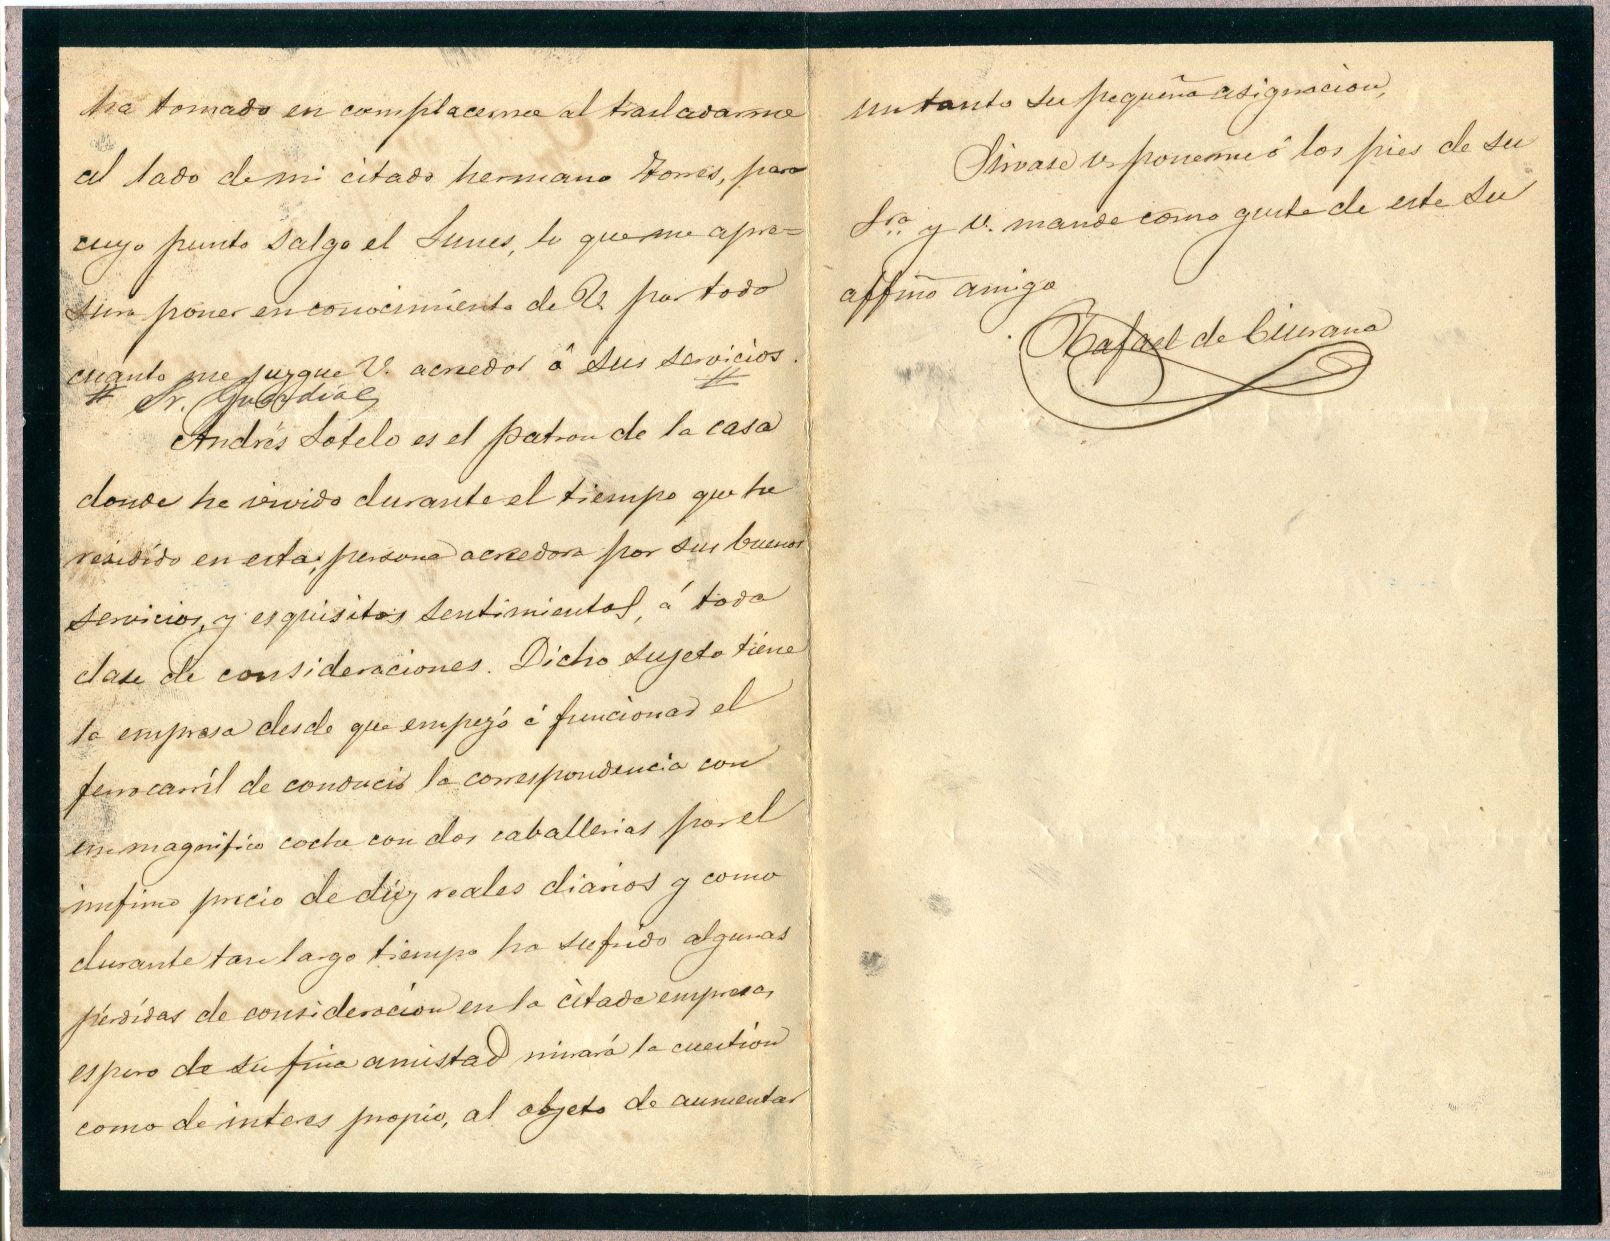 ha tomado en complacerme al trasladarme
al lado de mi citado hermano Torres, para
cuyo punto salgo el Lunes, lo que me apre=
sura poner en conocimiento de V. por todo
cuanto me juzgue V. acreedor á sus servicios.
# Sr. #
Andrés Sotelo es el patron de la casa
donde he vivido durante el tiempo que he
residido en esta, persona acreedora por sus buenos
servicios, y esquisitos sentimientos, á toda
clase de consideraciones. Dicho sujeto tiene
la empresa desde que empezó á funcionar el
ferrocarril de conducir la correspondencia con
un magnifico coche con dos caballerias por el
infimo precio de diez reales diarios y como
durante tan largo tiempo ha sufrido algunas
pérdidas de consideracion en la citada empresa,
espero de su fina amistad mirará la cuestion
como de interes propio, al objeto de aumentar
un tanto su pequeña asignacion,
Sirvase V. ponerme á los pies de su
Sra. y V. mande como guste de este su
affmo amigo
Rafael de Ciurana